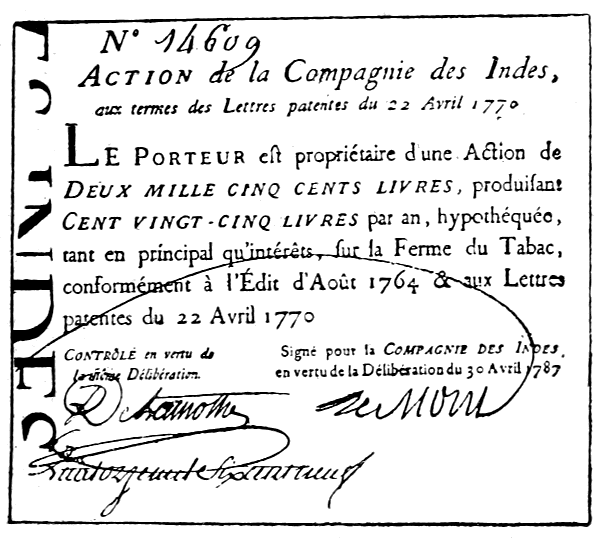 N° 14609
ACTION de la Compagnie des Indes,
aux termes des Lettres patentes du 22 Avril 1770
LE PORTEUR eſt propriétaire d'une Action de
DEUX MILLE CINQ CENTS LIVRES, produiſant
CENT VINGT-CINQ LIVRES par an, hypothéquée,
tant en principal qu'intérêts, ſur la Ferme du Tabac,
conformément à l'Édit d'Août 1764 & aux Lettres
patentes du 22 Avril 1770
CONTRÔLÉ en vertu de
la même Délibération.
Signé pour la COMPAGNIE DES INDES,
en vertu de la Délibération du 30 Avril 1787
INDES